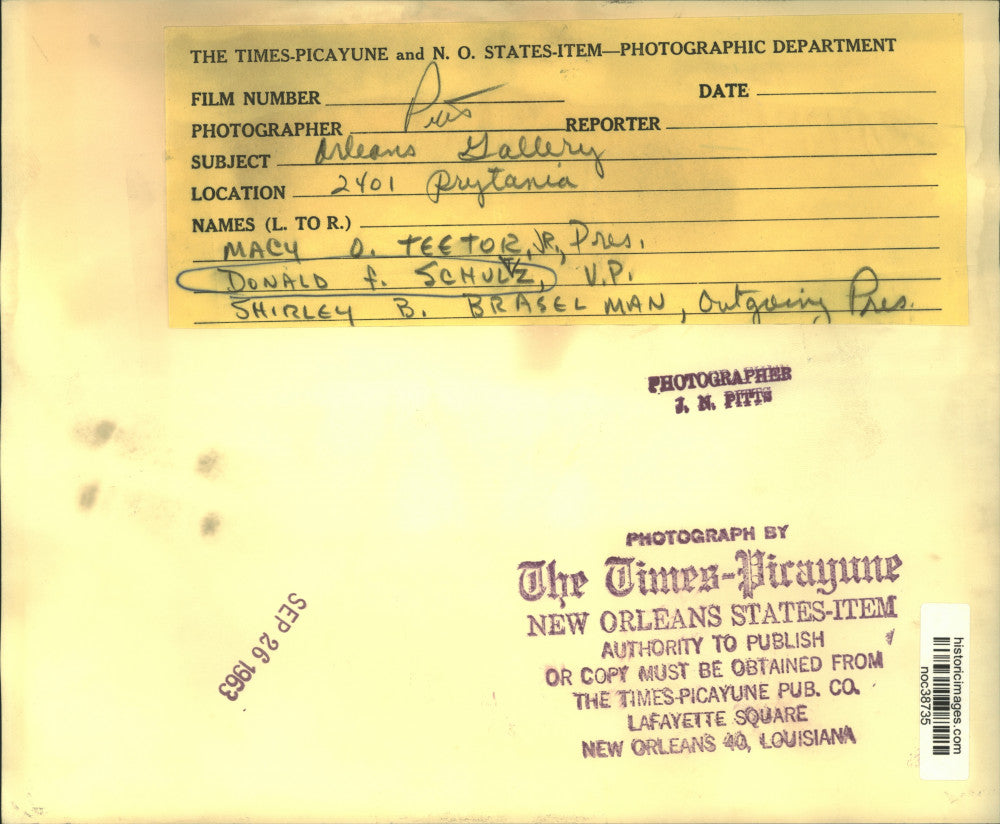 THE TIMES-PICAYUNE and N. O. STATES-ITEM—PHOTOGRAPHIC DEPARTMENT
FILM NUMBER
DATE
PHOTOGRAPHER Pitts REPORTER
SUBJECT Orleans Gallery
LOCATION 2401 Prytania
NAMES (L. TO R.)
MACY O. TEETOR, JR, Pres.
DONALD f. SCHULTZ, V.P.
SHIRLEY B. BRASELMAN, Outgoing Pres.
PHOTOGRAPHER
J. N. PITTS
PHOTOGRAPH BY
The Times-Picayune
NEW ORLEANS STATES-ITEM
AUTHORITY TO PUBLISH
OR COPY MUST BE OBTAINED FROM
THE TIMES-PICAYUNE PUB. CO.
LAFAYETTE SQUARE
NEW ORLEANS 40, LOUISIANA
SEP 26 1963
historicimages.com
noc38735